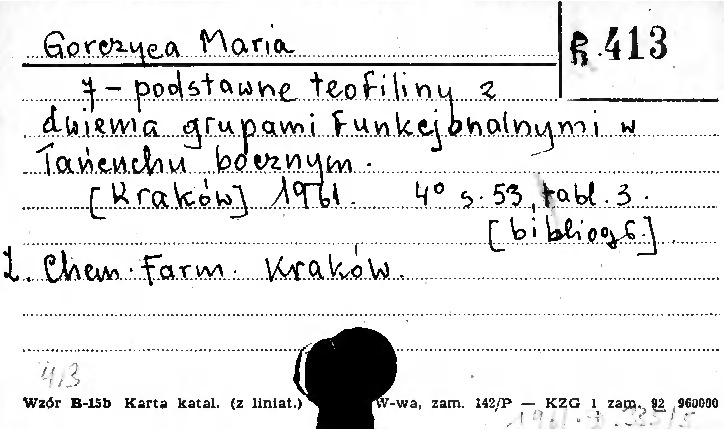 Gorczyca Maria
R.413
7-podstawne teofiliny z
dwiema grupami funkcjonalnymi w
łańcuchu bocznym.
[Kraków] 1961. 4° s.53, tabl.3.
[bibliogr.]
Z. Chem. Farm. Kraków.
413
Wzór B-15b Karta katal. (z liniat.) W-wa, zam. 142/P — KZG 1 zam. 92 960000